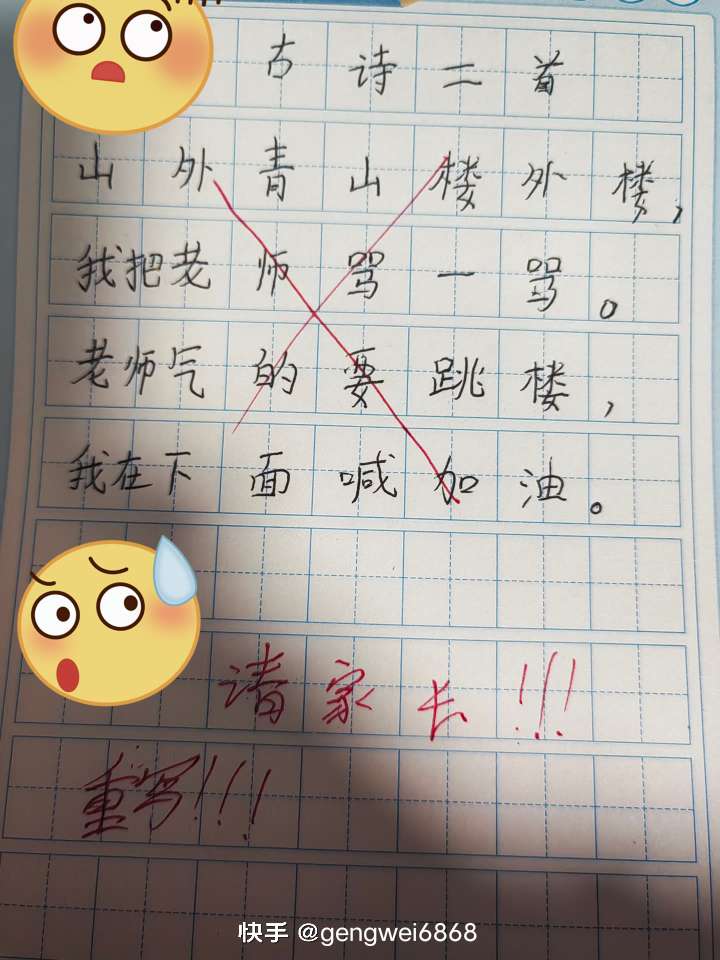 古诗二首
山外青山楼外楼,
我把老师骂一骂。
老师气的要跳楼,
我在下面喊加油。
请家长!!!
重写!!!
快手 @gengwei6868